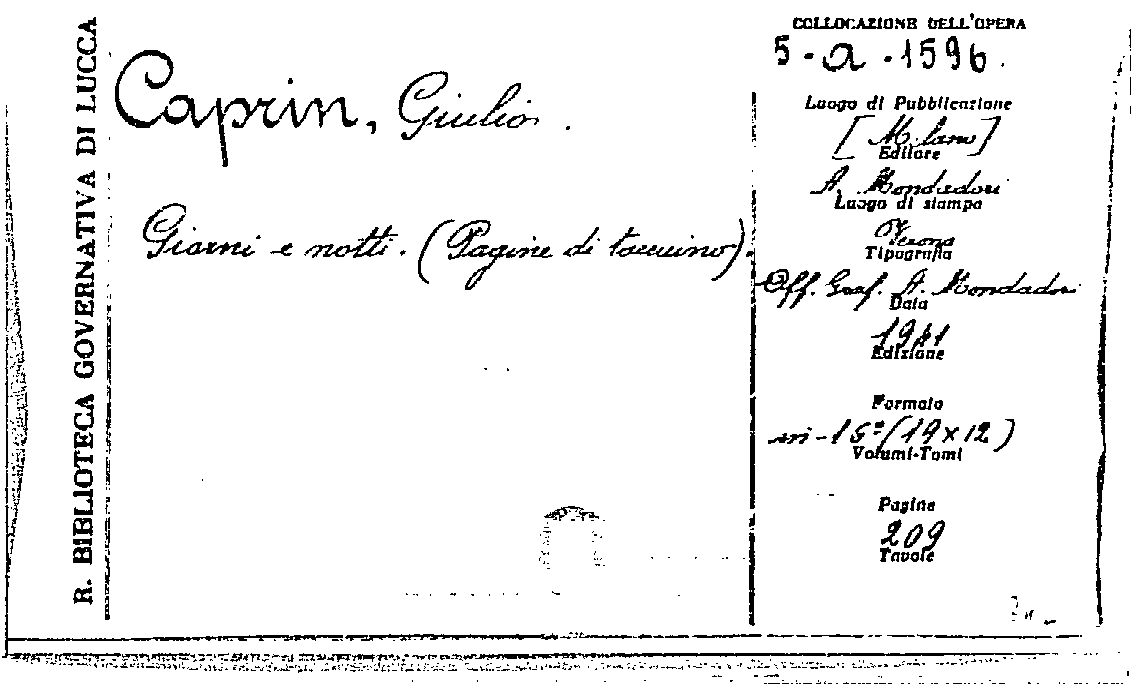 R. BIBLIOTECA GOVERNATIVA DI LUCCA
Caprin, Giulio.
Giorni e notti. (Pagine di taccuino).
COLLOCAZIONE DELL'OPERA
5-a-1596.
Luogo di Pubblicazione
[Milano]
Editore
A. Mondadori
Luogo di stampa
Verona
Tipografia
Off. Graf. A. Mondadori
Data
1941
Edizione
Formato
in-16º (19x12)
Volumi-Tomi
Pagine
209
Tavole